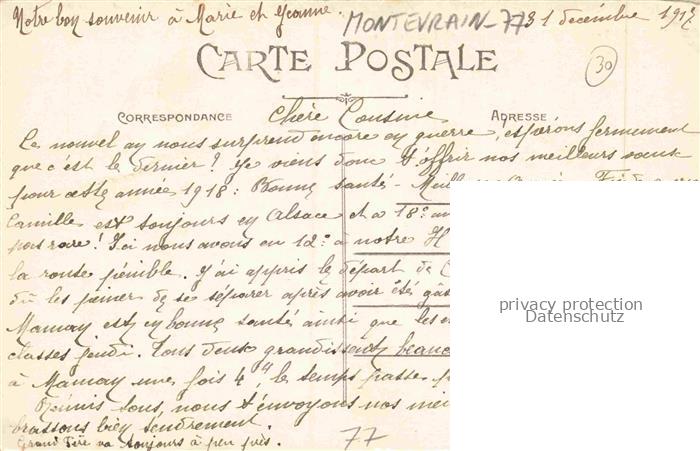 Notre bon souvenir à Marie et Jeanne.
MONTEVRAIN-77
31 decembre 1917
CARTE POSTALE
30
CORRESPONDANCE
ADRESSE
Chère Cousine
Ce nouvel an nous surprend encore en guerre, espérons fermement
que c'est le dernier! Je viens donc t'offrir nos meilleurs vœux
pour cette année 1918: Bonne santé -
Camille est toujours en Alsace et a 18°
pas rare! Ici nous avons eu 12° à notre
la route pénible. J'ai appris le départ de
dû les peiner de se séparer après avoir été
Maman est en bonne santé ainsi que les
classes jeudi. Tous deux grandissent
à Maman une fois 4, le temps passe
Réunis tous, nous t'envoyons nos
brassons bien tendrement.
Grand Père va toujours à peu près.
77
privacy protection
Datenschutz